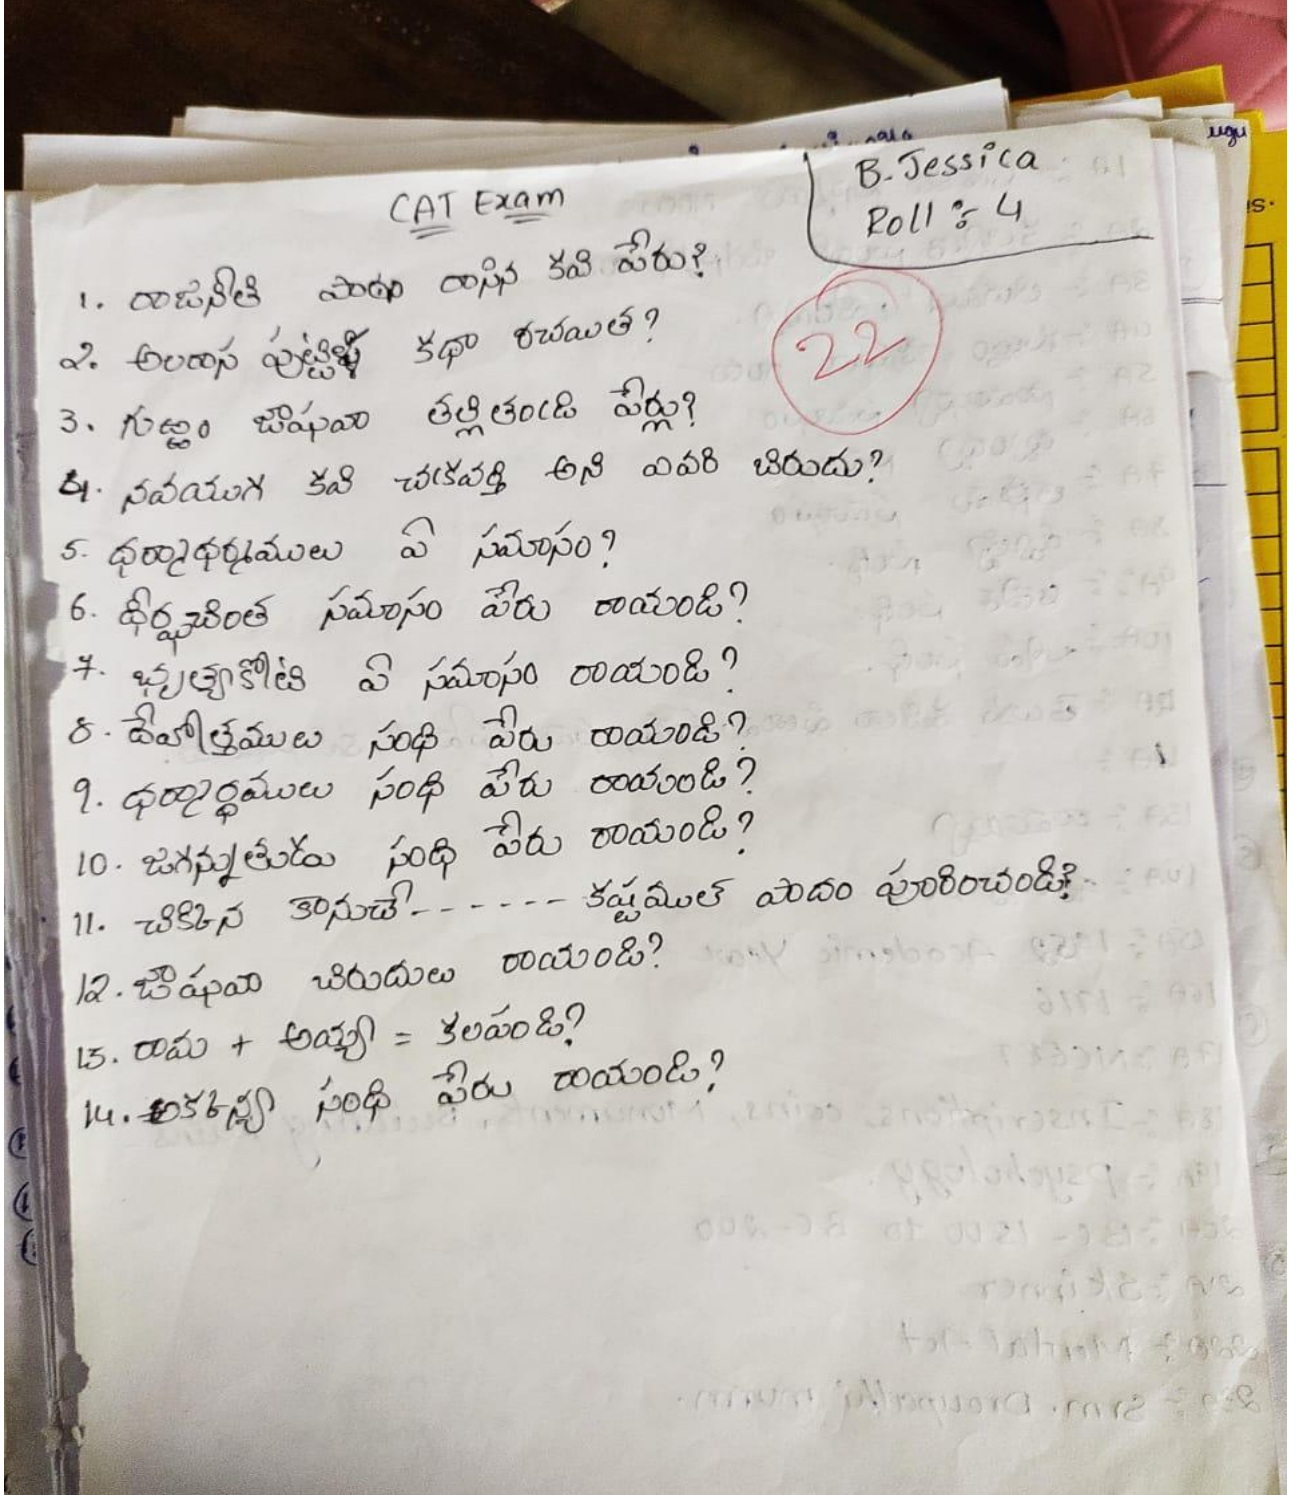 B. Jessica
Roll : 4
CAT Exam
22
1. రాజనీతి పాఠం రాసిన కవి పేరు?
2. అలరాస పుట్టిళ్ళు కథా రచయిత?
3. గుఱ్ఱం జాషువా తల్లితండ్రి పేర్లు?
4. నవయుగ కవి చక్రవర్తి అని ఎవరి బిరుదు?
5. ధర్మాధర్మములు ఏ సమాసం?
6. దీర్ఘచింత సమాసం పేరు రాయండి?
7. భృత్యాకోటి ఏ సమాసం రాయండి?
8. దేహోత్తములు సంధి పేరు రాయండి?
9. ధర్మార్థములు సంధి పేరు రాయండి?
10. జగన్నుతుడు సంధి పేరు రాయండి?
11. చిక్కిన కానుచే ------ కష్టముల్ పాదం పూరించండి?
12. జాషువా బిరుదులు రాయండి?
13. రామ + అయ్య = కలపండి?
14. సంధి పేరు రాయండి?